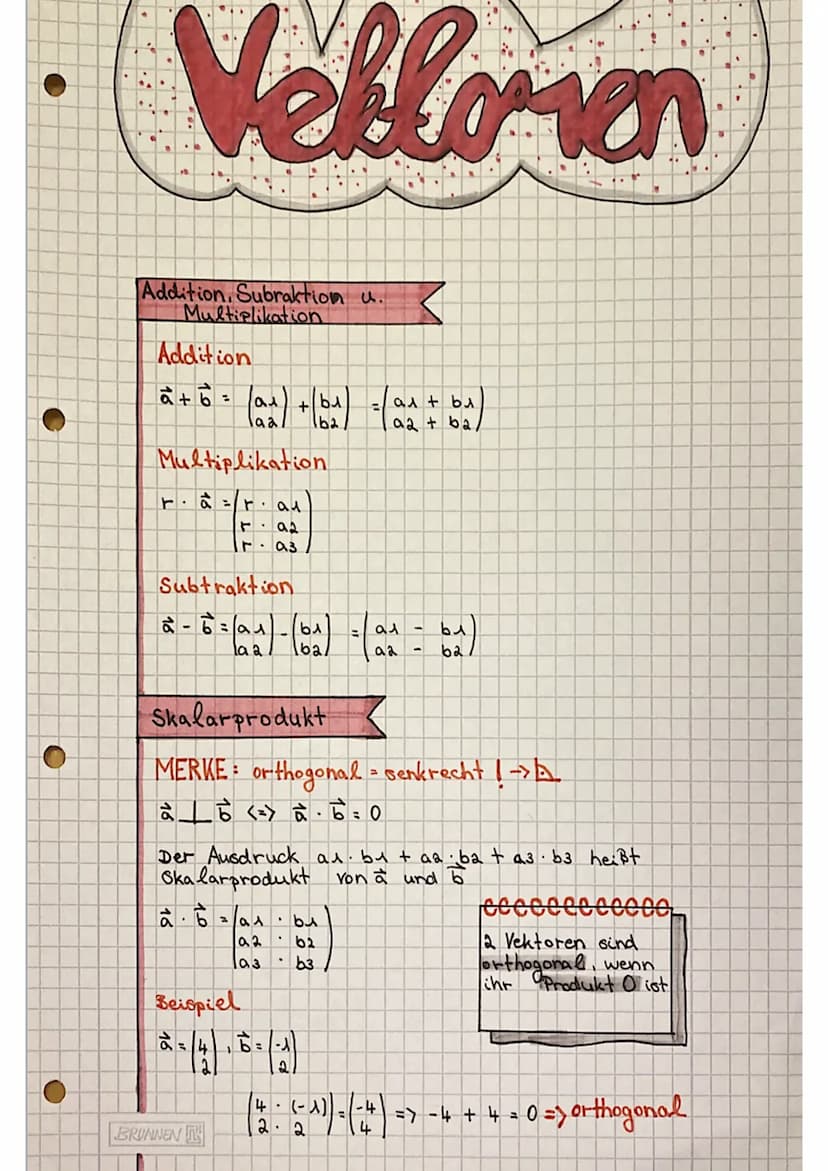 Vektoren
Addition, Subraktion u.
Multiplikation
Addition
a⃗ + b⃗ = (a1 a2) + (b1 b2) = (a1 + b1 a2 + b2)
Multiplikation
r · a⃗ = (r · a1
r · a2
r · a3)
Subtraktion
a⃗ - b⃗ = (a1 a2) - (b1 b2) = (a1 - b1 a2 - b2)
Skalarprodukt
MERKE: orthogonal = senkrecht ! → ⊾
a⃗ ⊥ b⃗ <=> a⃗ · b⃗ = 0
Der Ausdruck a1·b1 + a2·b2 + a3·b3 heißt
Skalarprodukt von a⃗ und b⃗
a⃗ · b⃗ = (a1 · b1
a2 · b2
a3 · b3)
2 Vektoren sind
orthogonal, wenn
ihr Produkt 0 ist
Beispiel
a⃗ = (4 2), b⃗ = (-1 2)
(4 · (-1) 2 · 2) = (-4 4) => -4 + 4 = 0 => orthogonal
BRUNNEN